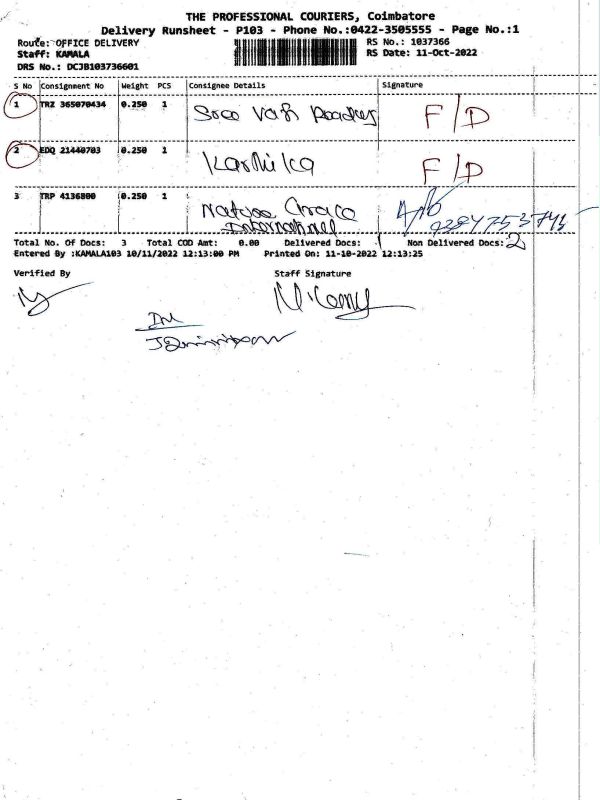 THE PROFESSIONAL COURIERS, Coimbatore
Delivery Runsheet - P103 - Phone No.:0422-3505555 - Page No.:1
Route: OFFICE DELIVERY RS No.: 1037366
Staff: KAMALA RS Date: 11-Oct-2022
DRS No.: DCJB103736601
S No Consignment No Weight PCS Consignee Details Signature
1 TRZ 365070434 0.250 1 F/D
2 EDQ 21440703 0.250 1 Karthika F/D
3 TRP 4136800 0.250 1
International
Total No. Of Docs: 3 Total COD Amt: 0.00 Delivered Docs: 1 Non Delivered Docs: 2
Entered By :KAMALA103 10/11/2022 12:13:00 PM Printed On: 11-10-2022 12:13:25
Verified By Staff Signature